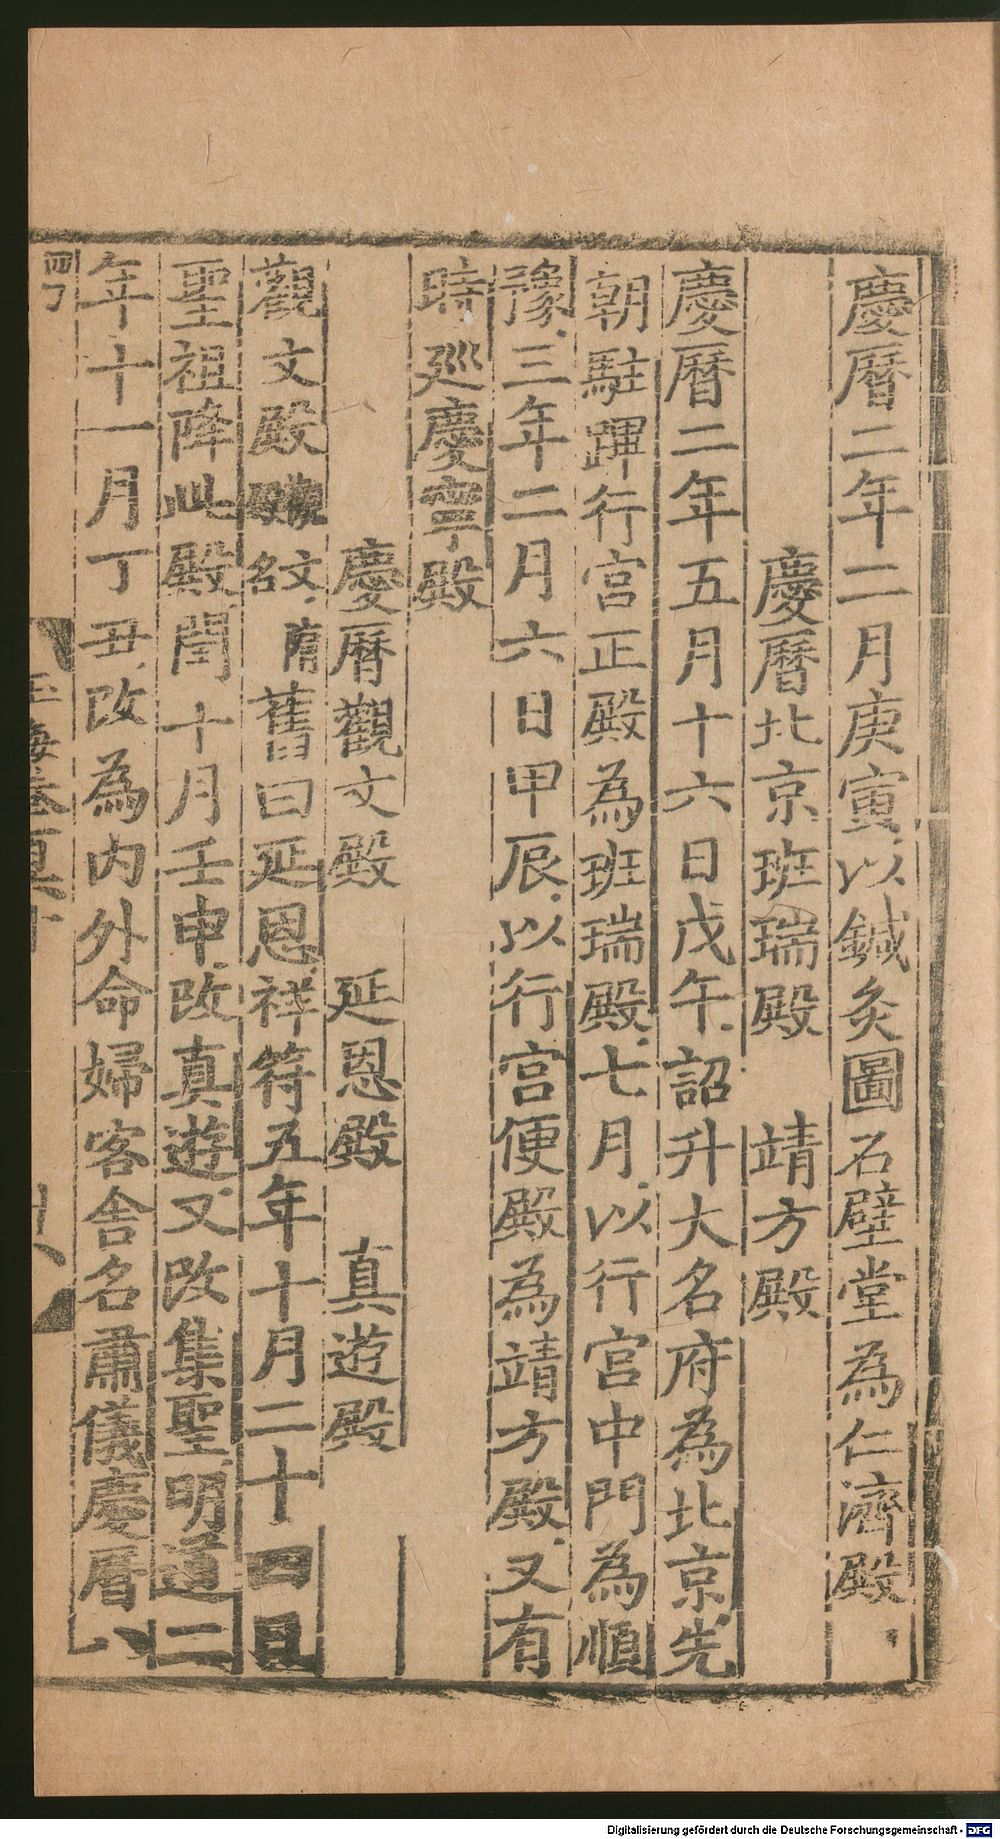 慶曆二年二月庚寅以鍼灸圖石壁堂為仁濟殿
慶曆北京班瑞殿　靖方殿
慶曆二年五月十六日戊午詔升大名府為北京先
朝駐蹕行宮正殿為班瑞殿七月以行宮中門為順
豫三年二月六日甲辰以行宮便殿為靖方殿又有
時巡慶寧殿
慶曆觀文殿　延恩殿　真遊殿
觀文殿名文舊曰延恩祥符五年十月二十四日
聖祖降此殿閏十月壬申改真遊又改集聖明道二
年十一月丁丑改為內外命婦客舍名肅儀慶曆八
玉海卷百六十
Digitalisierung gefördert durch die Deutsche Forschungsgemeinschaft - DFG